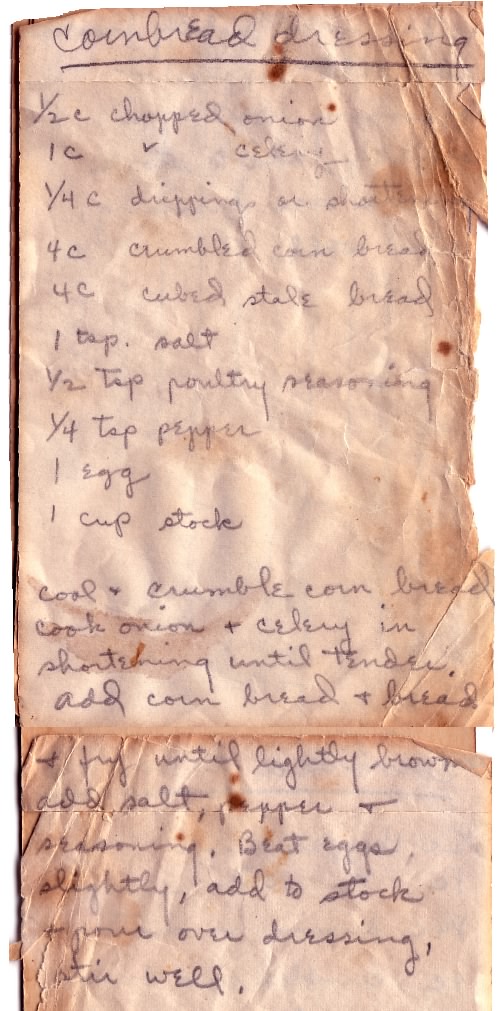 Cornbread dressing
1/2 c chopped onion
1 c " celery
1/4 c drippings or shortening
4c crumbled corn bread
4c cubed stale bread
1 tsp. salt
1/2 tsp poultry seasoning
1/4 tsp pepper
1 egg
1 cup stock
cool + crumble corn bread
cook onion + celery in
shortening until tender.
add corn bread + bread
+ fry until lightly brown
add salt, pepper +
seasoning. Beat eggs
slightly, add to stock
+ pour over dressing,
stir well.